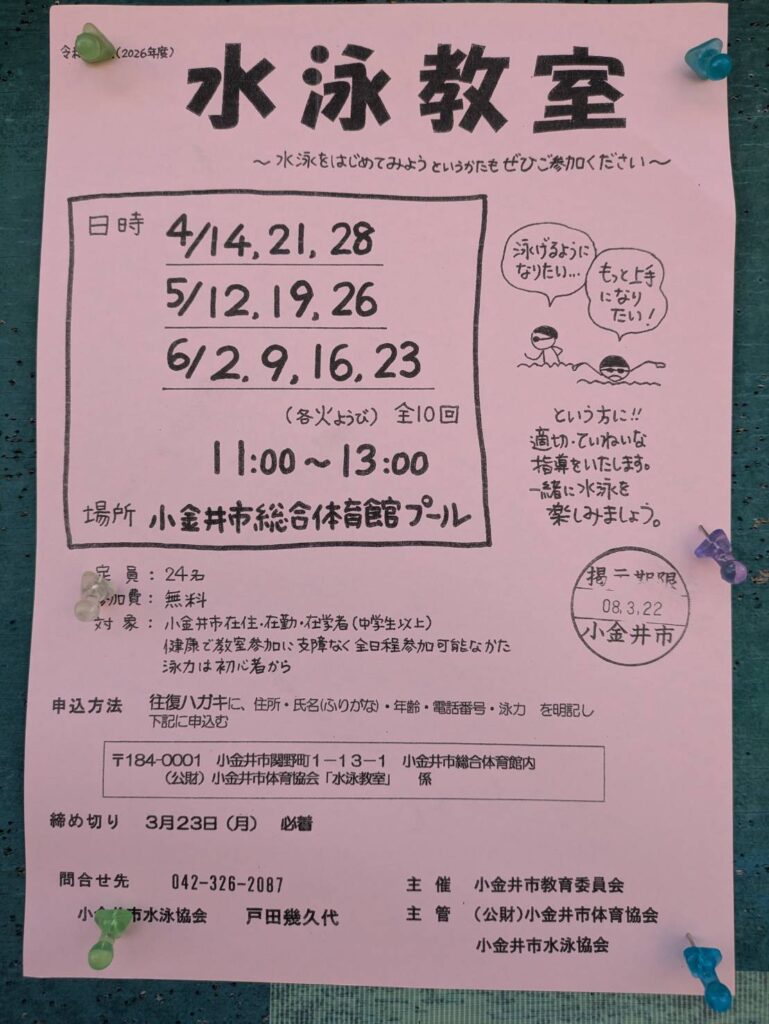 令和 (2026年度)
水泳教室
～水泳をはじめてみようというかたもぜひご参加ください～
日時 4/14, 21, 28
5/12, 19, 26
6/2, 9, 16, 23
(各火ようび) 全10回
11:00～13:00
場所 小金井市総合体育館プール
泳げるように
なりたい…
もっと上手
になり
たい!
という方に!!
適切・ていねいな
指導をいたします。
一緒に水泳を
楽しみましょう。
定員：24名
参加費：無料
対象：小金井市在住・在勤・在学者(中学生以上)
健康で教室参加に支障なく全日程参加可能なかた
泳力は初心者から
掲示期限
08.3.22
小金井市
申込方法 往復ハガキに、住所・氏名(ふりがな)・年齢・電話番号・泳力 を明記し
下記に申込む
〒184-0001 小金井市関野町1-13-1 小金井市総合体育館内
(公財)小金井市体育協会「水泳教室」 係
締め切り 3月23日(月) 必着
問合せ先 042-326-2087
小金井市水泳協会 戸田幾久代
主催 小金井市教育委員会
主管 (公財)小金井市体育協会
小金井市水泳協会